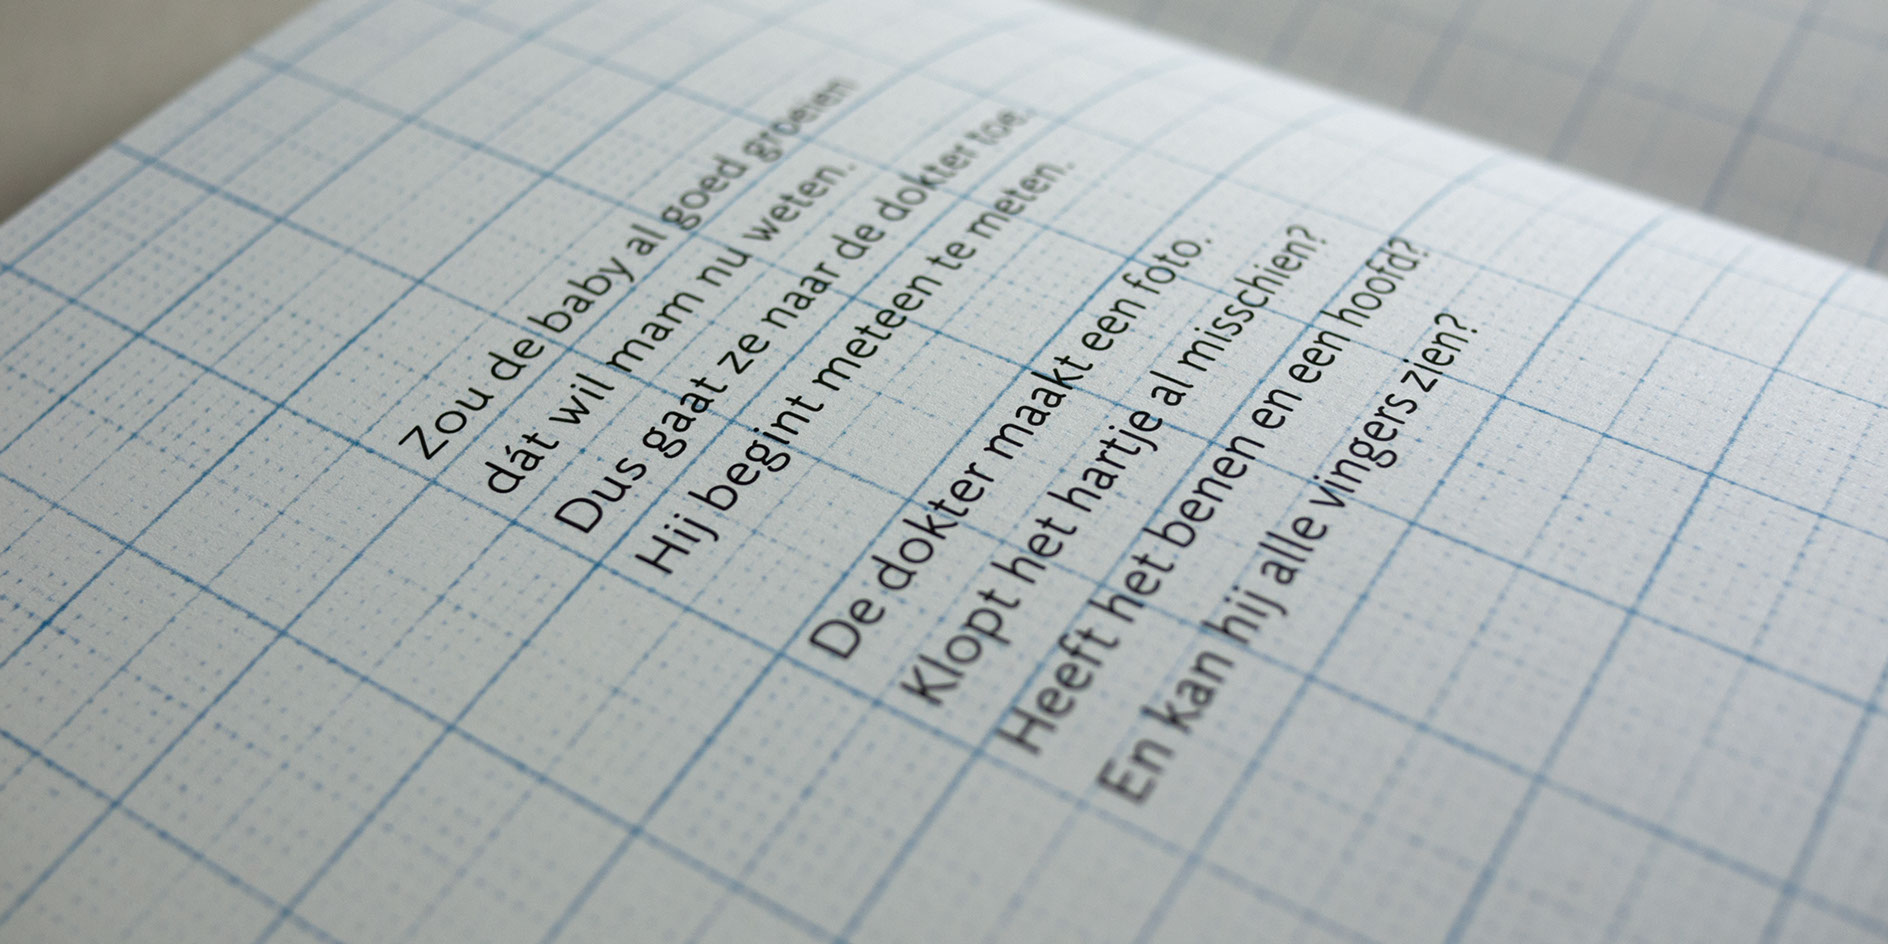 Zou de baby al goed groeien
dát wil mam nu weten.
Dus gaat ze naar de dokter toe.
Hij begint meteen te meten.
De dokter maakt een foto.
Klopt het hartje al misschien?
Heeft het benen en een hoofd?
En kan hij alle vingers zien?